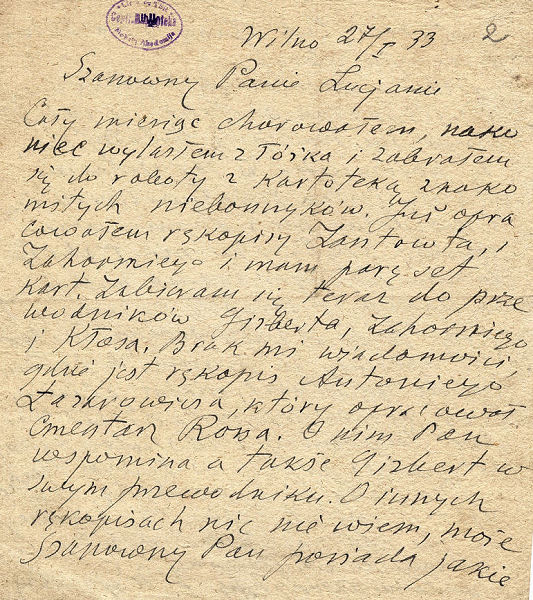 Centr. Biblioteka
Wilno 27/I 33
2
Szanowny Panie Lucjanie
Cały miesiąc chorowałem, nako
niec wylazłem z łóżka i zabrałem
się do roboty z kartoteką znako
mitych nieboszczyków. Już opra
cowałem rękopisy Zantowta, i
Zahorskiego i mam parę set
kart. Zabieram się teraz do prze
wodników Gizberta, Zahorskiego
i Kłosa. Brak mi wiadomości,
gdzie jest rękopis Antoniego
który opracował
Cmentarz Rossa. O nim Pan
wspomina a także Gizbert w
swym przewodniku. O innych
rękopisach nic nie wiem, może
Szanowny Pan posiada jakie